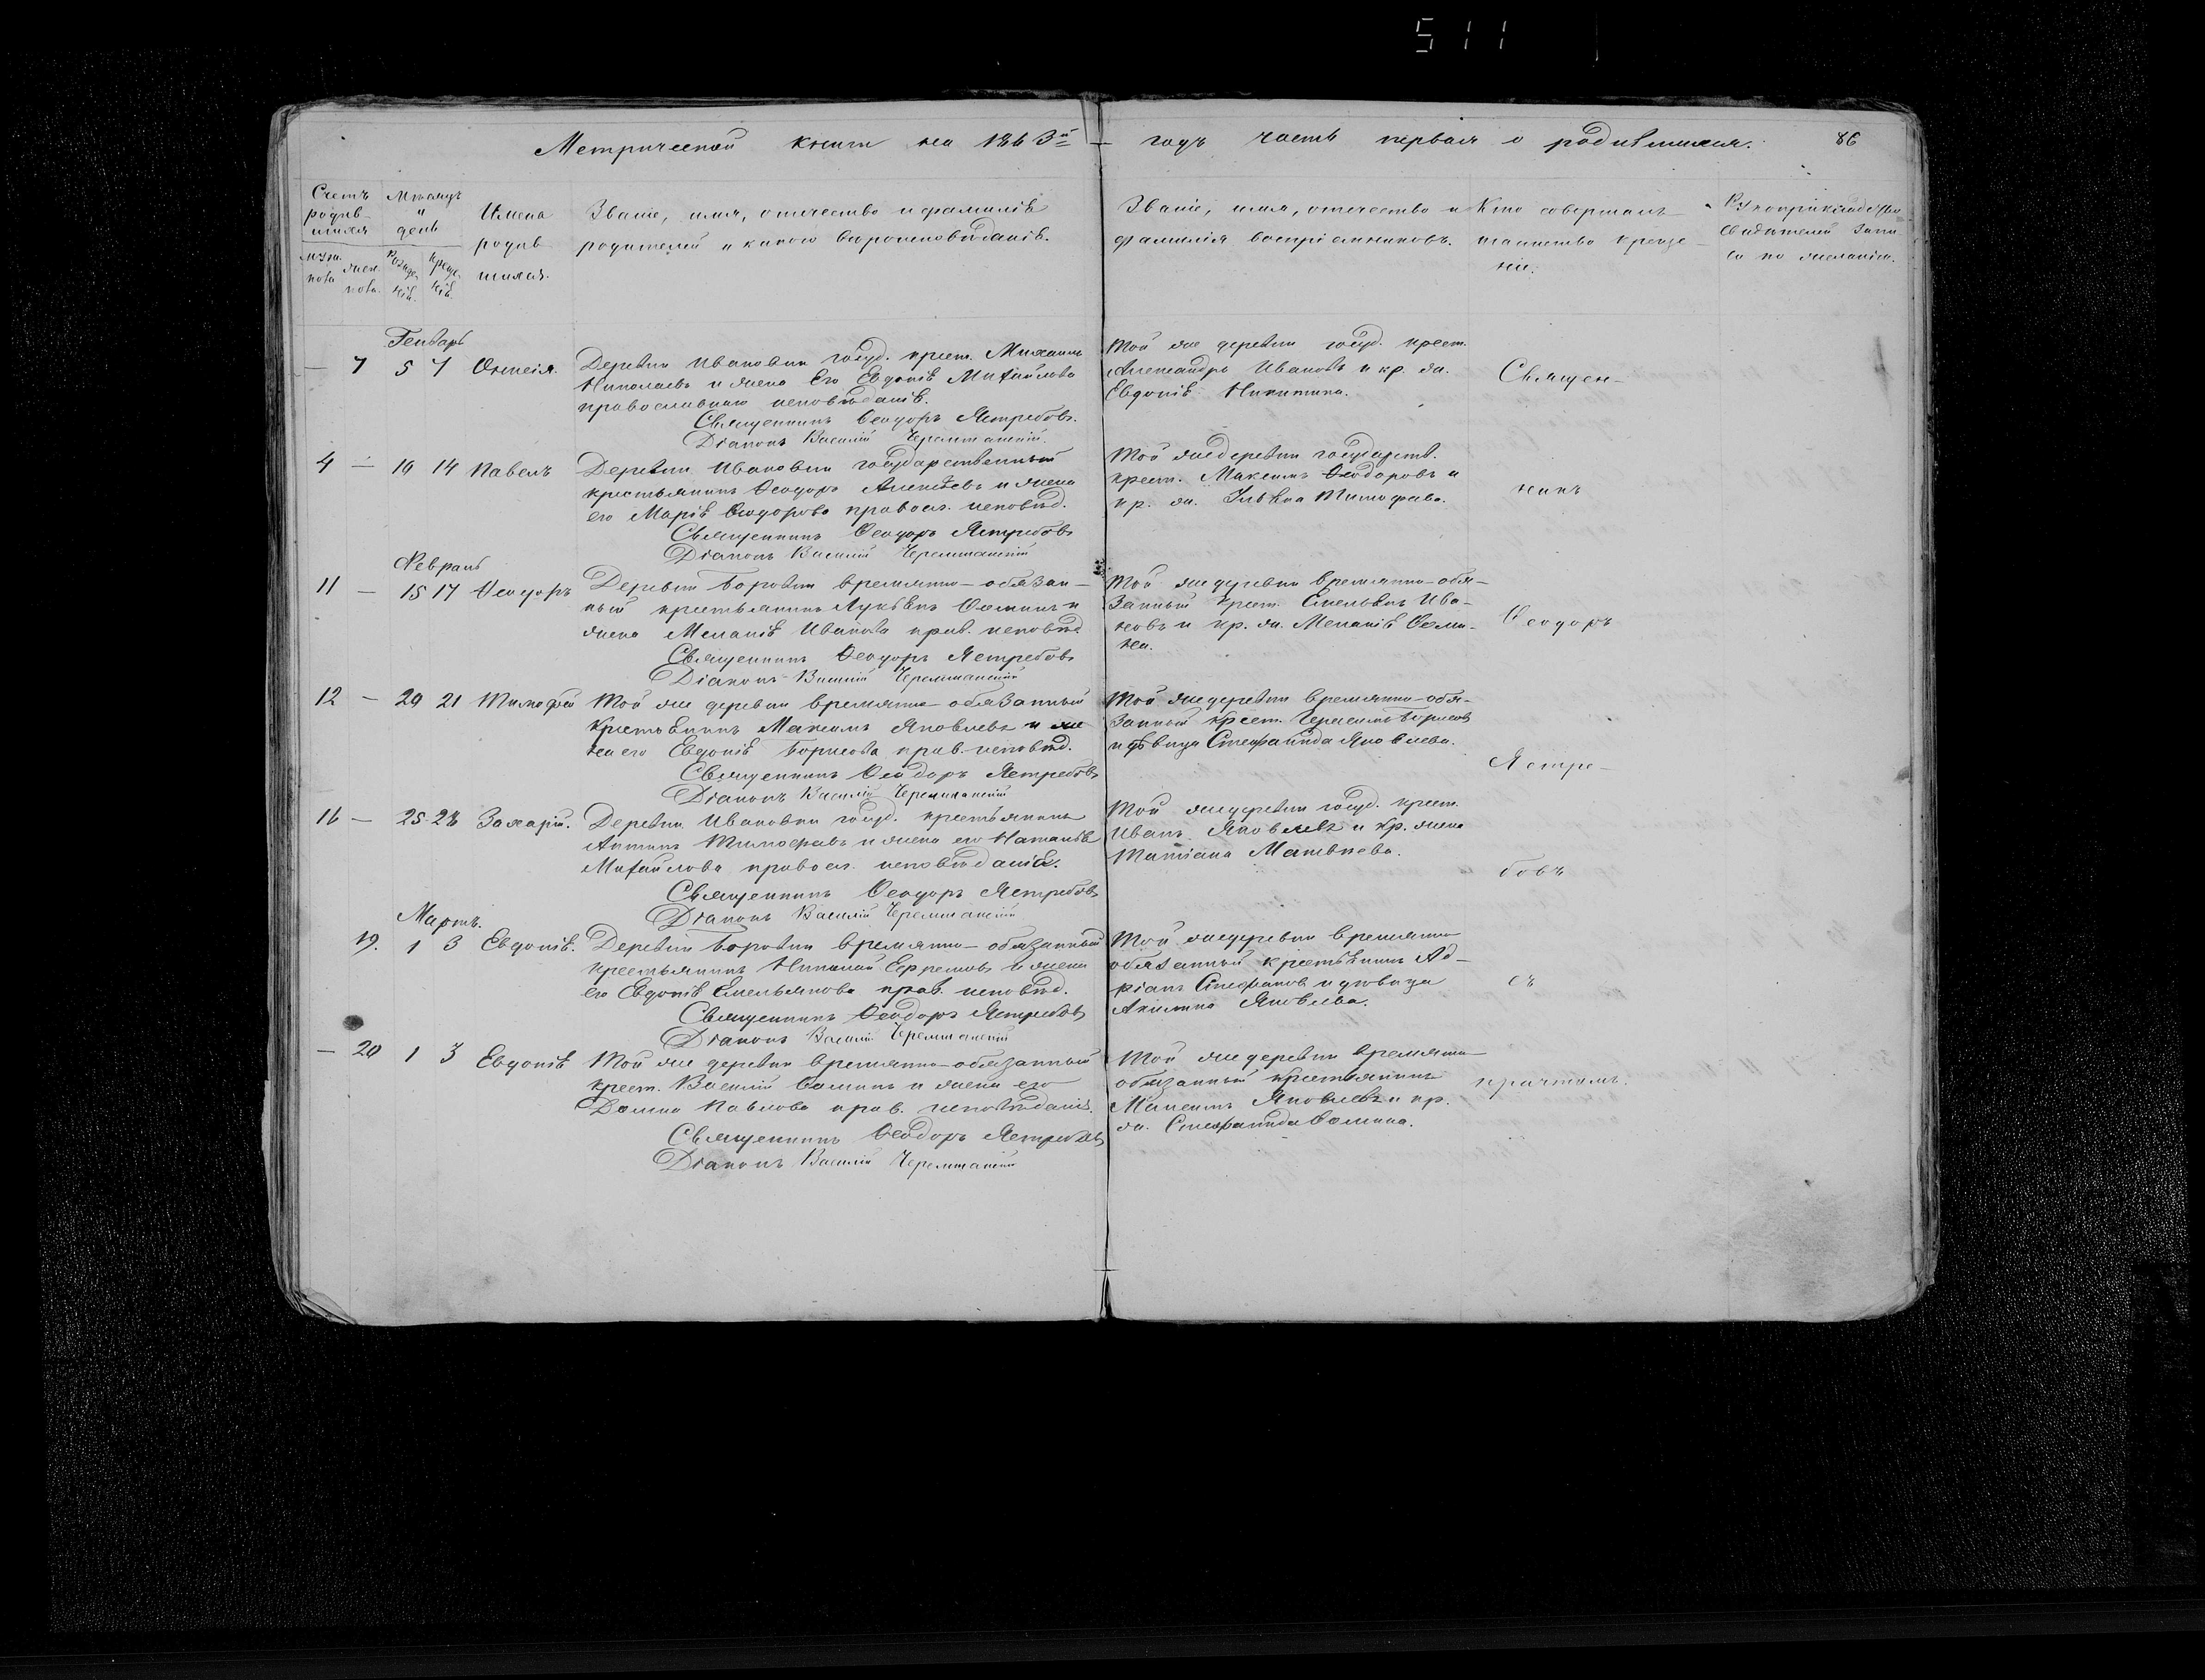 511
Метрической книги на 1863й годъ часть первая о родившихся. 86
Счетъ родив-шихся
Мѣсяцъ и день
Имена родив-шихся.
Званіе, имя, отчество и фамилія
родителей и какого вѣроисповѣданія.
Званіе, имя, отчество и
фамилія воспріемниковъ.
Кто совершалъ
таинство креще-
нія.
Рукоприкладство
свидѣтелей запи-
си по желанію.
муже.
пола
жен.
пола.
Рожде-
нія.
Креще-
нія.
Генварь
— 7 5 7 Ѳктсія.
Деревни Ивановки госуд. крест. Михаилъ
Николаевъ и жена его Евдокія Михайлова
православнаго исповѣданія.
Священникъ Ѳеодоръ Ястребовъ.
Діаконъ Василій Черемшанскій.
Той же деревни госуд. крест.
Александръ Ивановъ и кр. жа.
Евдокія Никитина.
Священ-
4 — 10 14 Павелъ
Деревни Ивановки государственный
крестьянинъ Ѳеодоръ Алексѣевъ и жена
его Марія Ѳеодорова правосл. исповѣд.
Священникъ Ѳеодоръ Ястребовъ
Діаконъ Василій Черемшанскій
Той же деревни государств.
крест. Максимъ Ѳеодоровъ и
кр. жа. Тимофѣева.
никъ
Февраль
11 — 15 17 Ѳеодоръ
Деревни Боровки временно-обязан-
ный крестьянинъ Лукьянъ Ѳоминъ и
жена Меланія Иванова прав. исповѣд
Священникъ Ѳеодоръ Ястребовъ
Діаконъ Василій Черемшанскій
Той же деревни временно-обя-
занный крест. Емельянъ Ива-
новъ и кр. жа. Меланія Ѳоми-
на.
Ѳеодоръ
12 — 20 21 Тимофей
Той же деревни временно-обязанный
крестьянинъ Максимъ Яковлевъ и же
на его Евдокія Борисова прав. исповѣд.
Священникъ Ѳеодоръ Ястребовъ
Діаконъ Василій Черемшанскій
Той же деревни временно-обя-
занный крест. Герасимъ Борисовъ
и дѣвица Стефанида Яковлева.
Ястре-
16 — 25 28 Захарій.
Деревни Ивановки госуд. крестьянинъ
Антипъ Тимофѣевъ и жена его Наталія
Михайлова правосл. исповѣданія.
Священникъ Ѳеодоръ Ястребовъ
Діаконъ Василій Черемшанскій
Той же деревни госуд. крест.
Иванъ Яковлевъ и кр. жена
Татіана Матвѣева.
бовъ
Мартъ.
19. 1 3 Евдокія.
Деревни Боровки временно-обязанный
крестьянинъ Николай Ефремовъ и жена
его Евдокія Емельянова прав. исповѣд.
Священникъ Ѳеодоръ Ястребовъ
Діаконъ Василій Черемшанскій
Той же деревни временно
обязанный крестьянинъ Ад-
ріанъ Стефановъ и дѣвица
Акилина Яковлева.
съ
— 20 1 3 Евдокія
Той же деревни временно-обязанный
крест. Василій Ѳоминъ и жена его
Домна Павлова прав. исповѣданія.
Священникъ Ѳеодоръ Ястребовъ
Діаконъ Василій Черемшанскій
Той же деревни временно
обязанный крестьянинъ
Максимъ Яковлевъ и кр.
жа. Стефанида Ѳомина.
причтомъ.